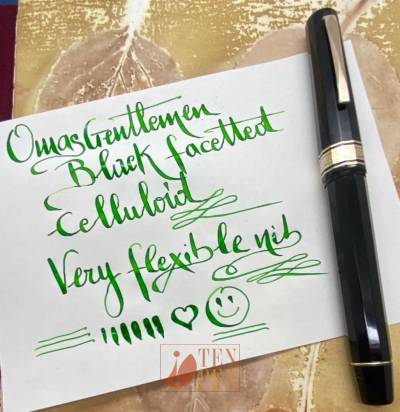 Omas Gentlemen
Black facetted
Celluloid
Very flexible nib
TEN
PEN